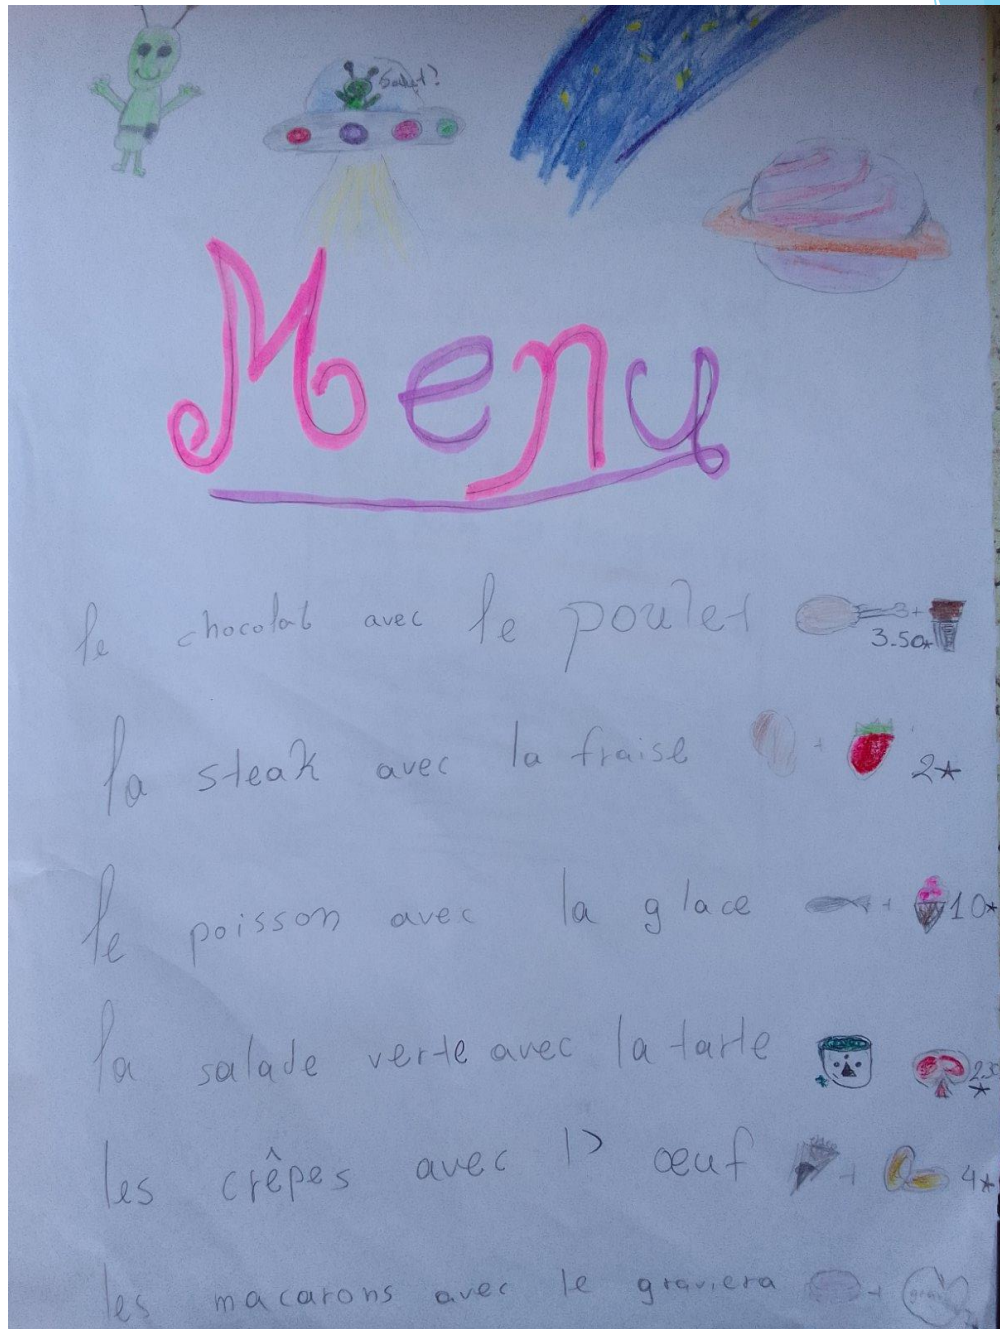 Salut?
Menu
le chocolat avec le poulet 3.50*
la steak avec la fraise + 2*
le poisson avec la glace + 10*
la salade verte avec la tarte
les crêpes avec l' œuf + 4*
les macarons avec le graviera +